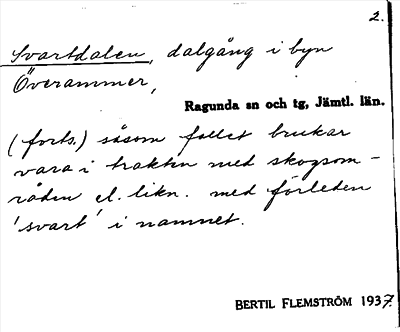 2.
Svartdalen, dalgång i byn
Överammer,
Ragunda sn och tg, Jämtl. län.
(forts.) såsom fallet brukar
vara i trakten med skogsom-
råden el. likn. med förleden
'svart' i namnet.
BERTIL FLEMSTRÖM 1937.